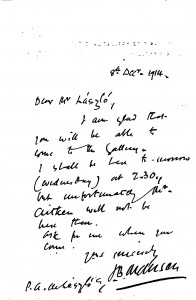 8th Dec. 1914.
Dear Mr László,
I am glad that
you will be able to
come to the Gallery.
I shall be here to-morrow
(Wednesday) at 2.30,
but unfortunately Mr
Aitken will not be
here then.
Ask for me when you
come.
Yours sincerely
P. A. de László Esq.